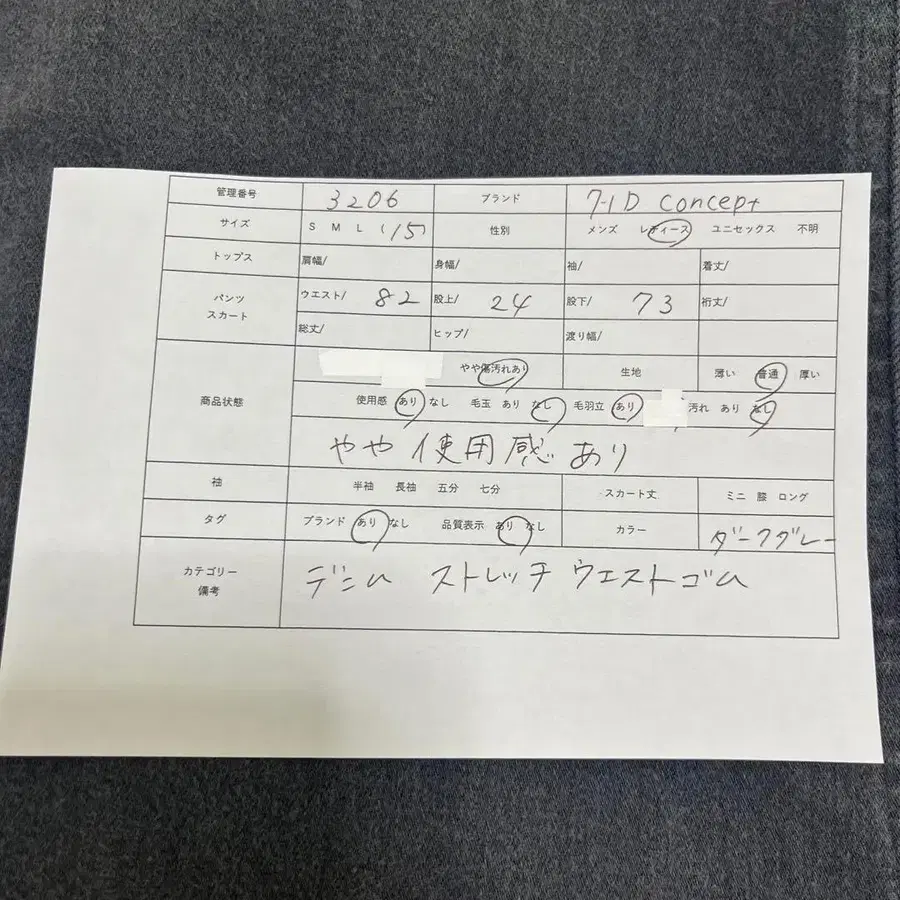 管理番号 3206 ブランド 7-ID concept
サイズ S M L (15) 性別 メンズ レディース ユニセックス 不明
トップス 肩幅/ 身幅/ 袖/ 着丈/
パンツ スカート ウエスト/ 82 股上/ 24 股下/ 73 裄丈/
総丈/ ヒップ/ 渡り幅/
商品状態 やや傷汚れあり 生地 薄い 普通 厚い
使用感 あり なし 毛玉 あり なし 毛羽立 あり 汚れ あり なし
やや使用感あり
袖 半袖 長袖 五分 七分 スカート丈 ミニ 膝 ロング
タグ ブランド あり なし 品質表示 あり なし カラー ダークグレー
カテゴリー 備考 デニム ストレッチ ウエストゴム